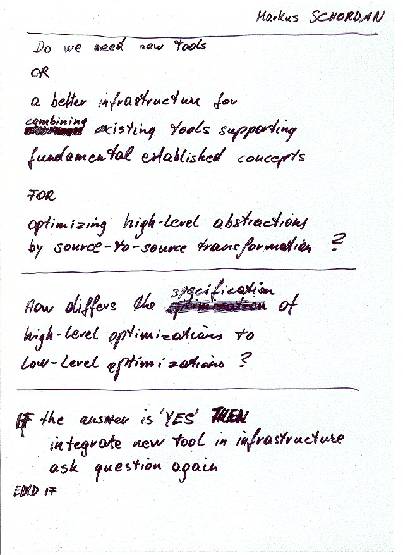 Markus SCHORDAN
Do we need new tools
OR
a better infrastructure for
combining existing tools supporting
fundamental established concepts
FOR
optimizing high-level abstractions
by source-to-source transformation ?
How differs the specification of
high-level optimizations to
low-level optimizations ?
IF the answer is 'YES' THEN
integrate new tool in infrastructure
ask question again
ENDIF